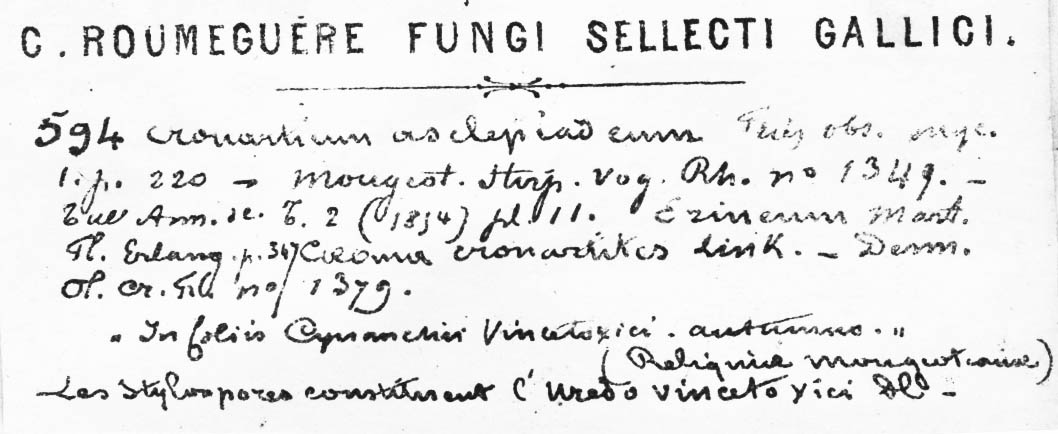 C. ROUMEGUÈRE FUNGI SELLECTI GALLICI.
594 Cronartium asclepiadeum Fries obs. myc.
1. p. 220 – Mougeot. Stirp. Vog. Rh. no 1349. –
Tul Ann. sc. T. 2 (1854) pl. 11. Erineum Mart.
Fl. Erlang. p. 347 Cæoma cronartites Link. – Desm.
Pl. Cr. no 1379.
„ In foliis Cynanchii Vincetoxici. autumno. „
(Reliquiæ Mougeotianæ)
– Les Stylospores constituent l'Uredo vincetoxici DC –